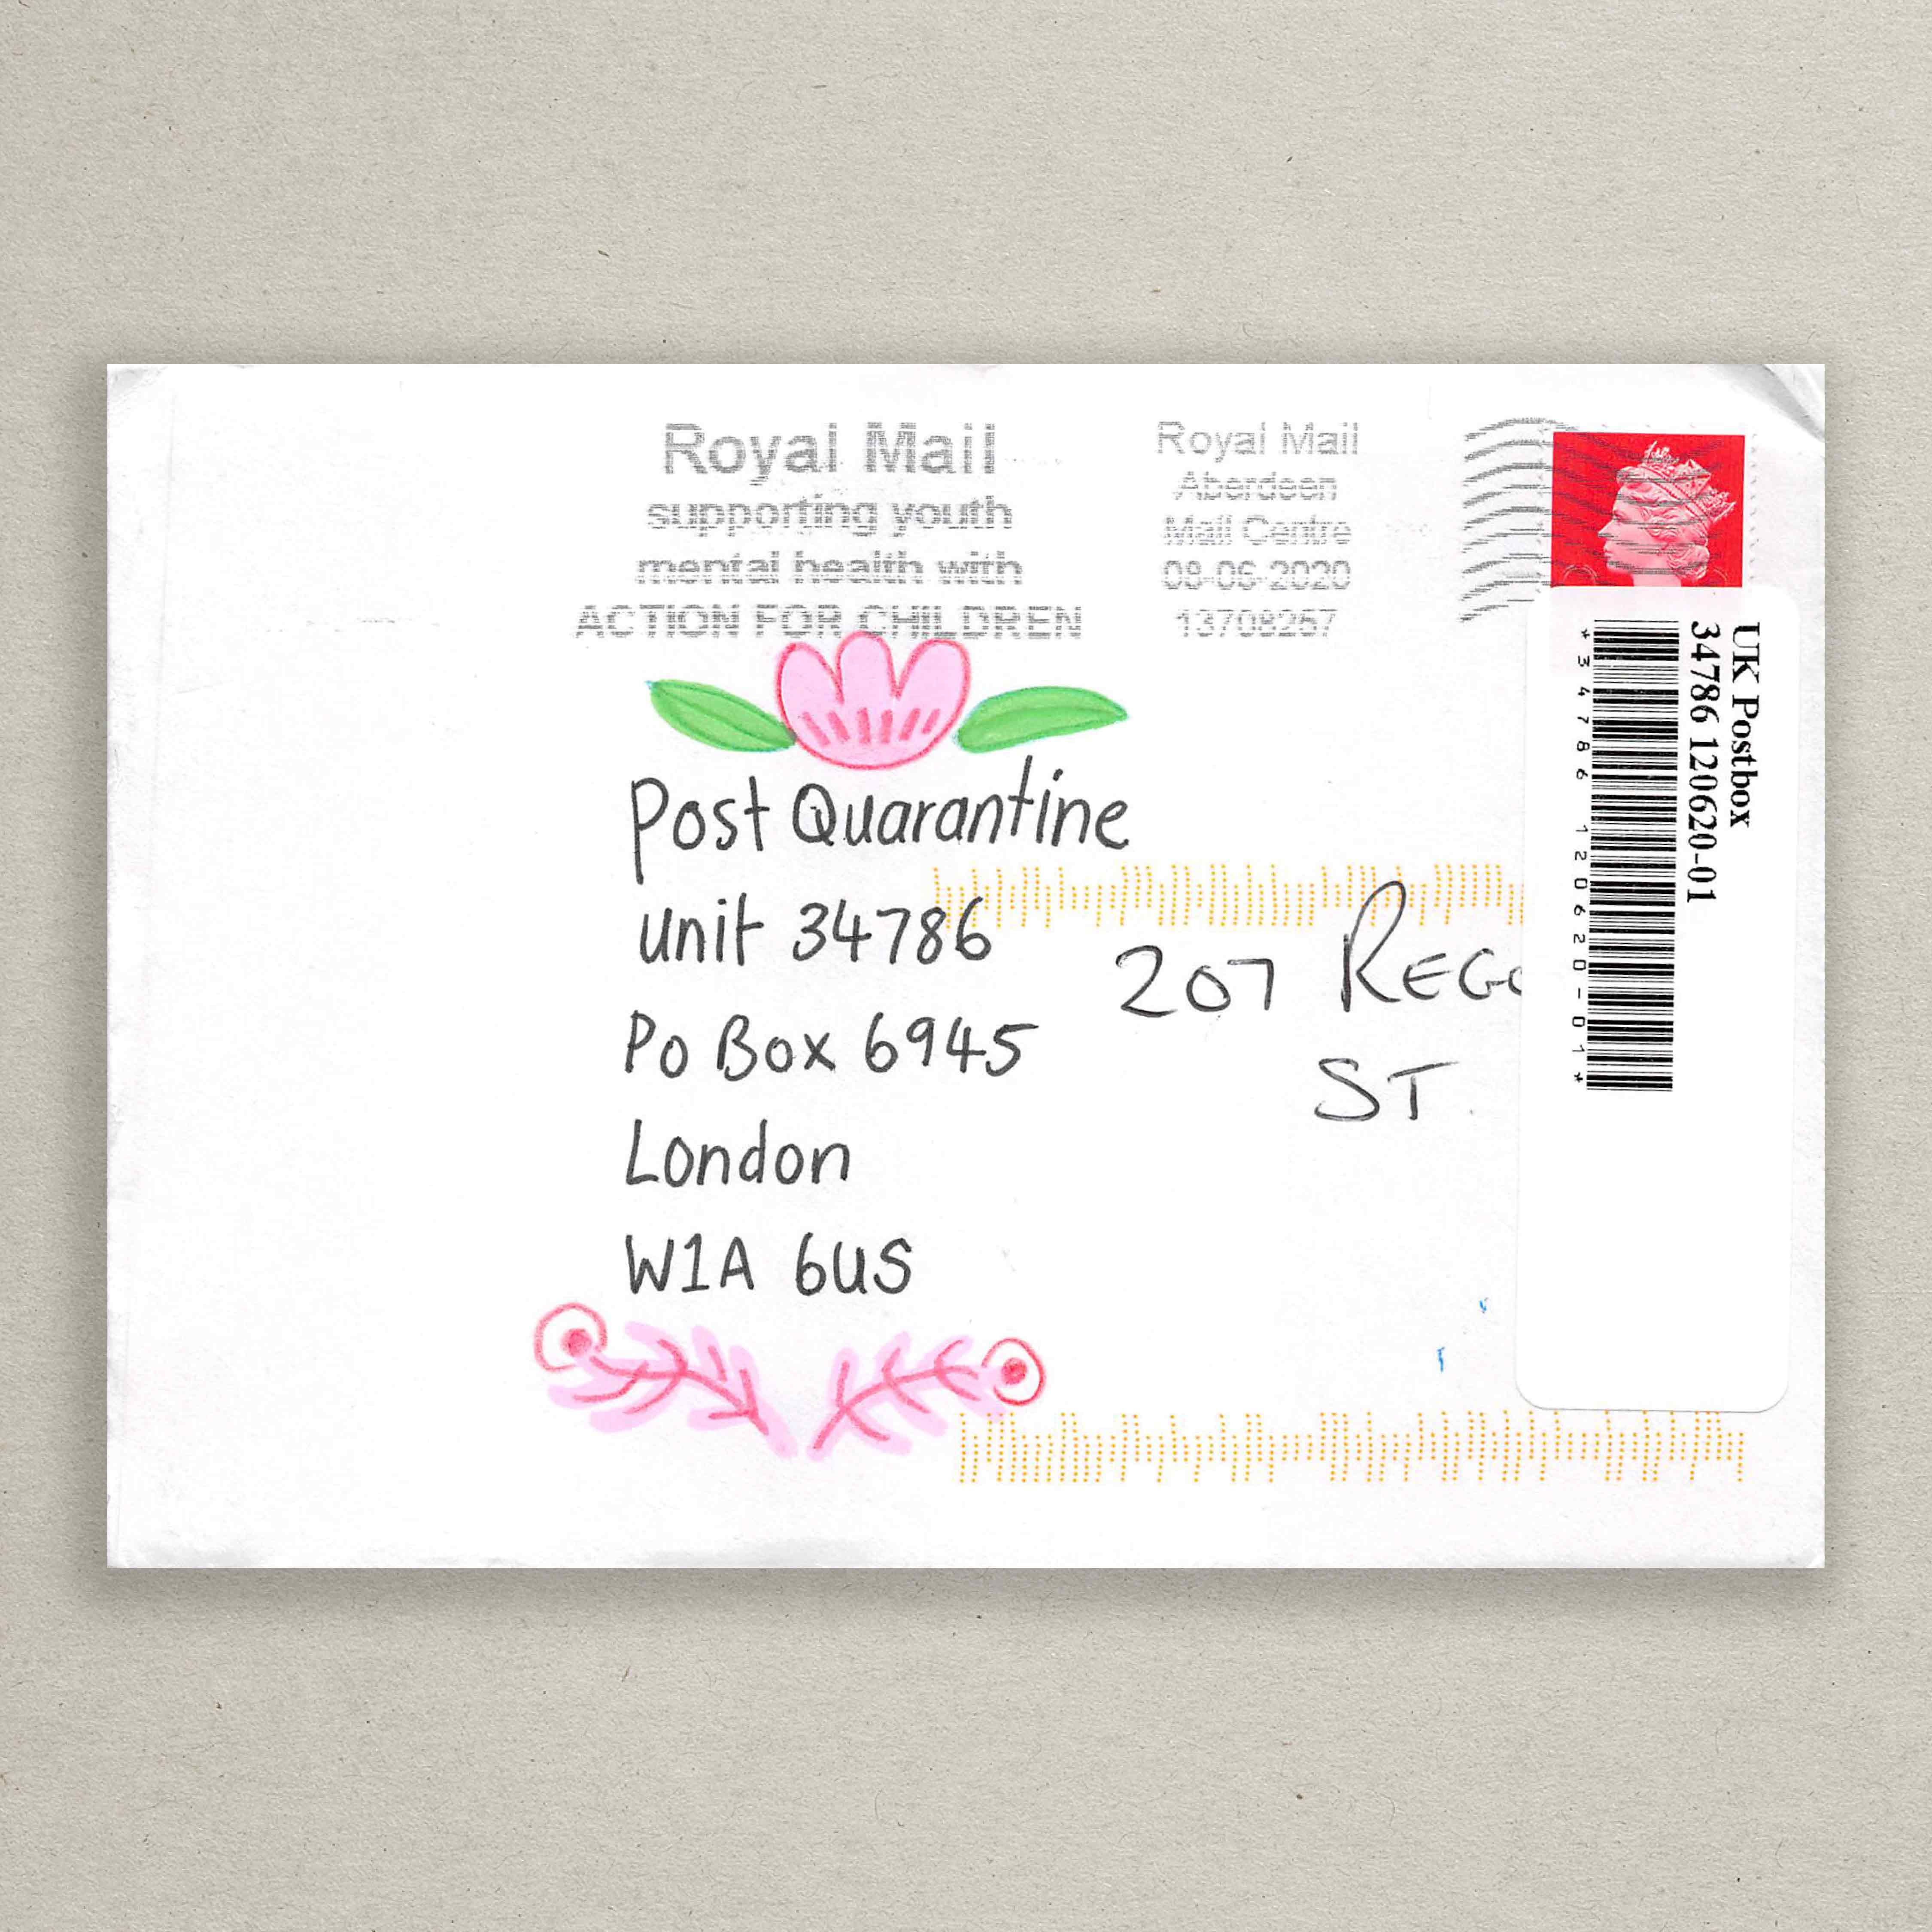 Royal Mail
supporting youth
mental health with
ACTION FOR CHILDREN
Royal Mail
Aberdeen
Mail Centre
08-06-2020
13709257
UK Postbox
34786 120620-01
*34786 120620-01*
Post Quarantine
unit 34786
Po Box 6945
London
W1A 6US
207
ST.